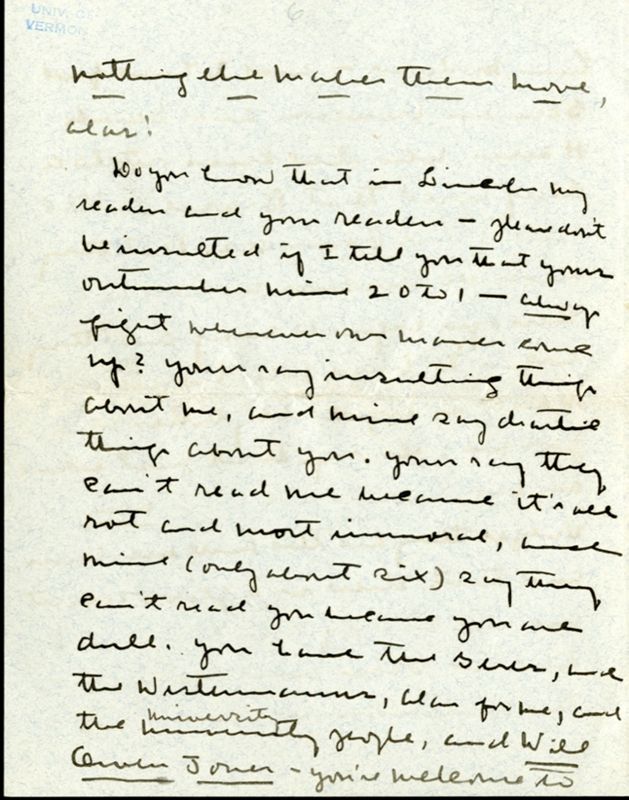 UNIV. OF
VERMONT
6
nothing else makes them move,
alas!
Do you know that in Lincoln my
readers and your readers — please don't
be insulted if I tell you that yours
outnumber mine 20 to 1 — always
fight whenever our names come
up? Yours say insulting things
about me, and mine say
things about you. Yours say they
can't read me because it's all
rot and most immoral, and
mine (only about six) say they
can't read you because you are
dull. You have the Geres, and
the Westermanns, alas for me, and
university
the people, and Will
Owen Jones – you're welcome to